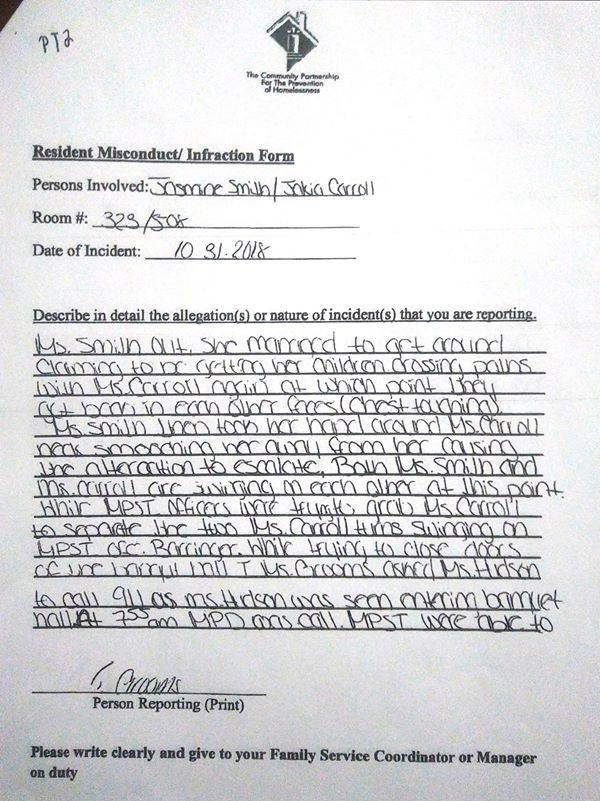 PT2
The Community Partnership
For The Prevention
of Homelessness
Resident Misconduct/ Infraction Form
Persons Involved: Jasmine Smith / Jakia Carroll
Room #: 323/508
Date of Incident: 10 31.2018
Describe in detail the allegation(s) or nature of incident(s) that you are reporting.
Ms. Smith out. She managed to get around
claiming to be getting her children crossing paths
with Ms. Carroll again at which point they
got back in each other faces (chest touching).
Ms. Smith then took her hand around Ms. Carroll
neck smooching her away from her causing
the altercation to escalate. Both Ms. Smith and
Ms. Carroll are swinging on each other at this point.
While MPST officers were trying to grab Ms. Carroll
to separate the two Ms. Carroll turns swinging on
MPST ofc. Barringer. While trying to close doors
of the banquet hall I Ms. Brooms asked Ms. Hudson
to call 911 as ms. Hudson was seen entering banquet
hall. At 755 am MPD call. MPST were able to
T. Brooms
Person Reporting (Print)
Please write clearly and give to your Family Service Coordinator or Manager
on duty